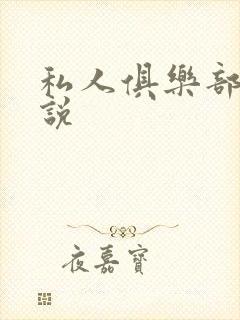 私人俱樂部
說
夜嘉寶